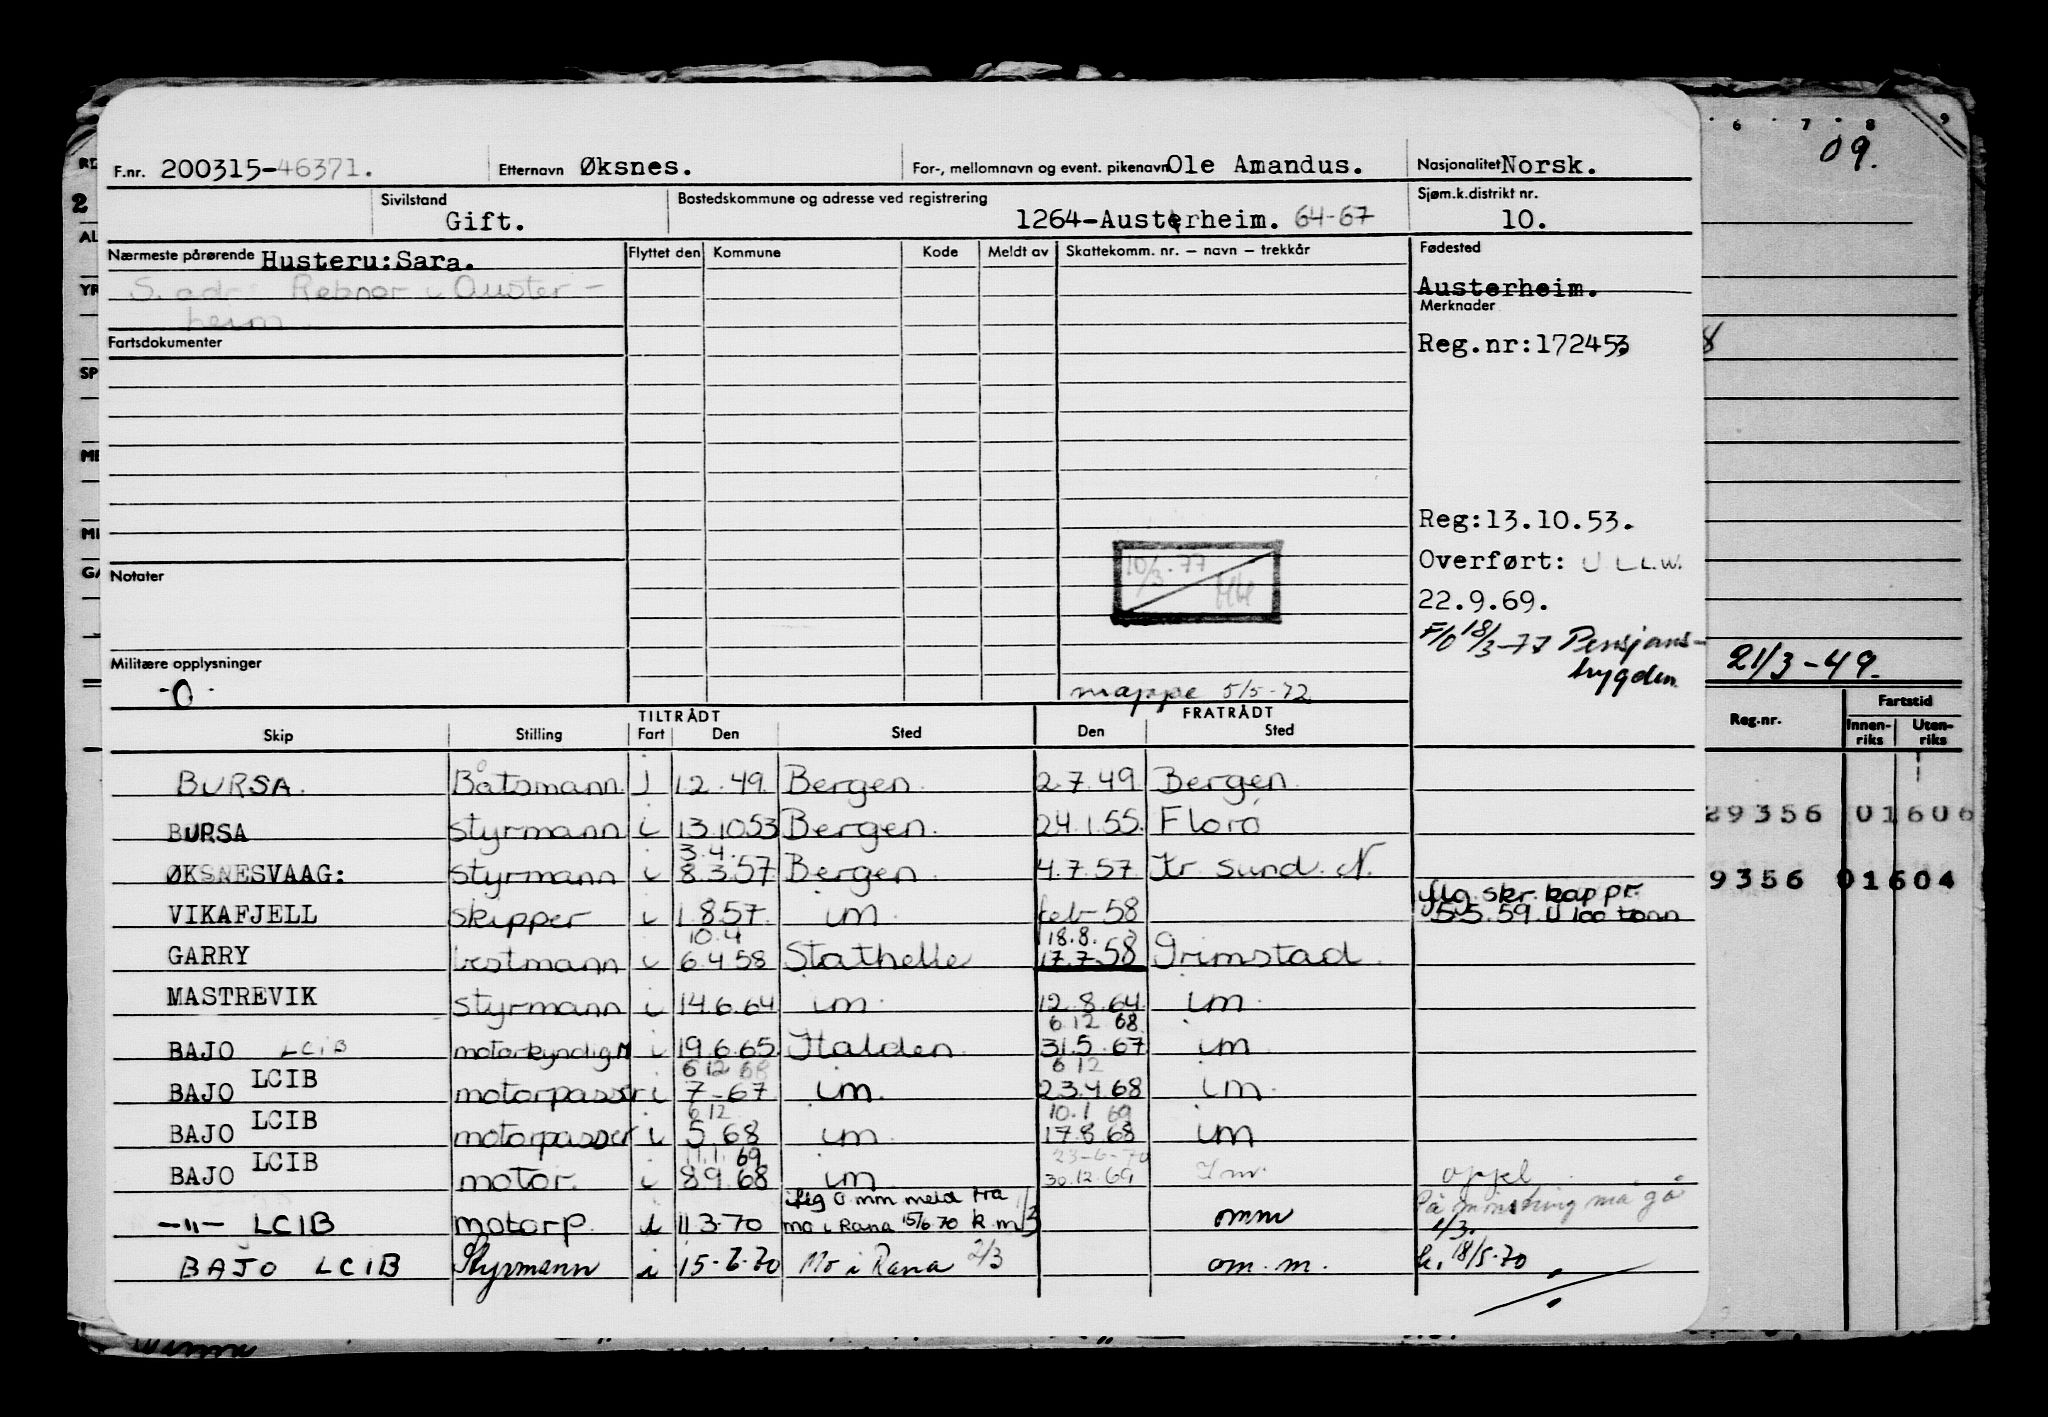 F.nr. 200315-46371. Etternavn Øksnes. For-, mellomnavn og event. pikenavn Ole Amandus. Nasjonalitet Norsk.
Sivilstand Gift. Bostedskommune og adresse ved registrering 1264-Austerheim. 64-67 Sjøm.k.distrikt nr. 10.
Nærmeste pårørende Husteru:Sara. Flyttet den Kommune Kode Meldt av Skattekomm. nr. – navn – trekkår Fødested
S. adr. Rebnor i Auster-
heim
Austerheim.
Merknader
Fartsdokumenter
Reg.nr:172453
Reg:13.10.53.
Overført: U LL.W.
22.9.69.
10/3-77
F/O 18/3-77 Pensjons-
trygden
Notater
Militære opplysninger
-0-
mappe 5/5-72
TILTRÅDT FRATRÅDT
Skip Stilling Fart Den Sted Den Sted
BURSA. Båtsmann I 1.2.49. Bergen. 2.7.49. Bergen.
BURSA styrmann i 13.10.53 Bergen. 24.1.55. Florø
3.4.
ØKSNESVAAG: styrmann i 8.3.57. Bergen. 4.7.57. Kr. sund. N.
flg. skr. kap pr.
VIKAFJELL skipper i 1.8.57. im feb-58 5.5.59. U 100 tonn
10.4 18.8.
GARRY bestmann i 6.4.58 Stathelle 17.7.58 Grimstad.
MASTREVIK styrmann i 14.6.64 im. 12.8.64. im.
6.12 68
BAJO LCIB motorkyndig M i 19.6.65 Halden. 31.5.67 im
6 12 68 6 12
BAJO LCIB motorpasser i 7-67 im. 23.4.68 im.
6 12 10.1 69
BAJO LCIB motorpasser i 5.68 im. 17.8.68 im
11.1. 69 23-6-70
BAJO LCIB motor. i 8.9.68 im. 30.12.69 Im. oppl
flg 0 mm meld fra På mønstring må gå
-"- LCIB motorp. i 11.3.70 mo i Rana 15/6.70 omm 1/3.
BAJO LCIB Styrmann i 15-7-70 Mo i Rana 2/3 om. m. 18/5-70
6 7 8 9
09.
8
21/3-49.
Fartstid
Reg.nr. Innen-riks Uten-riks
29356 01606
9356 01604